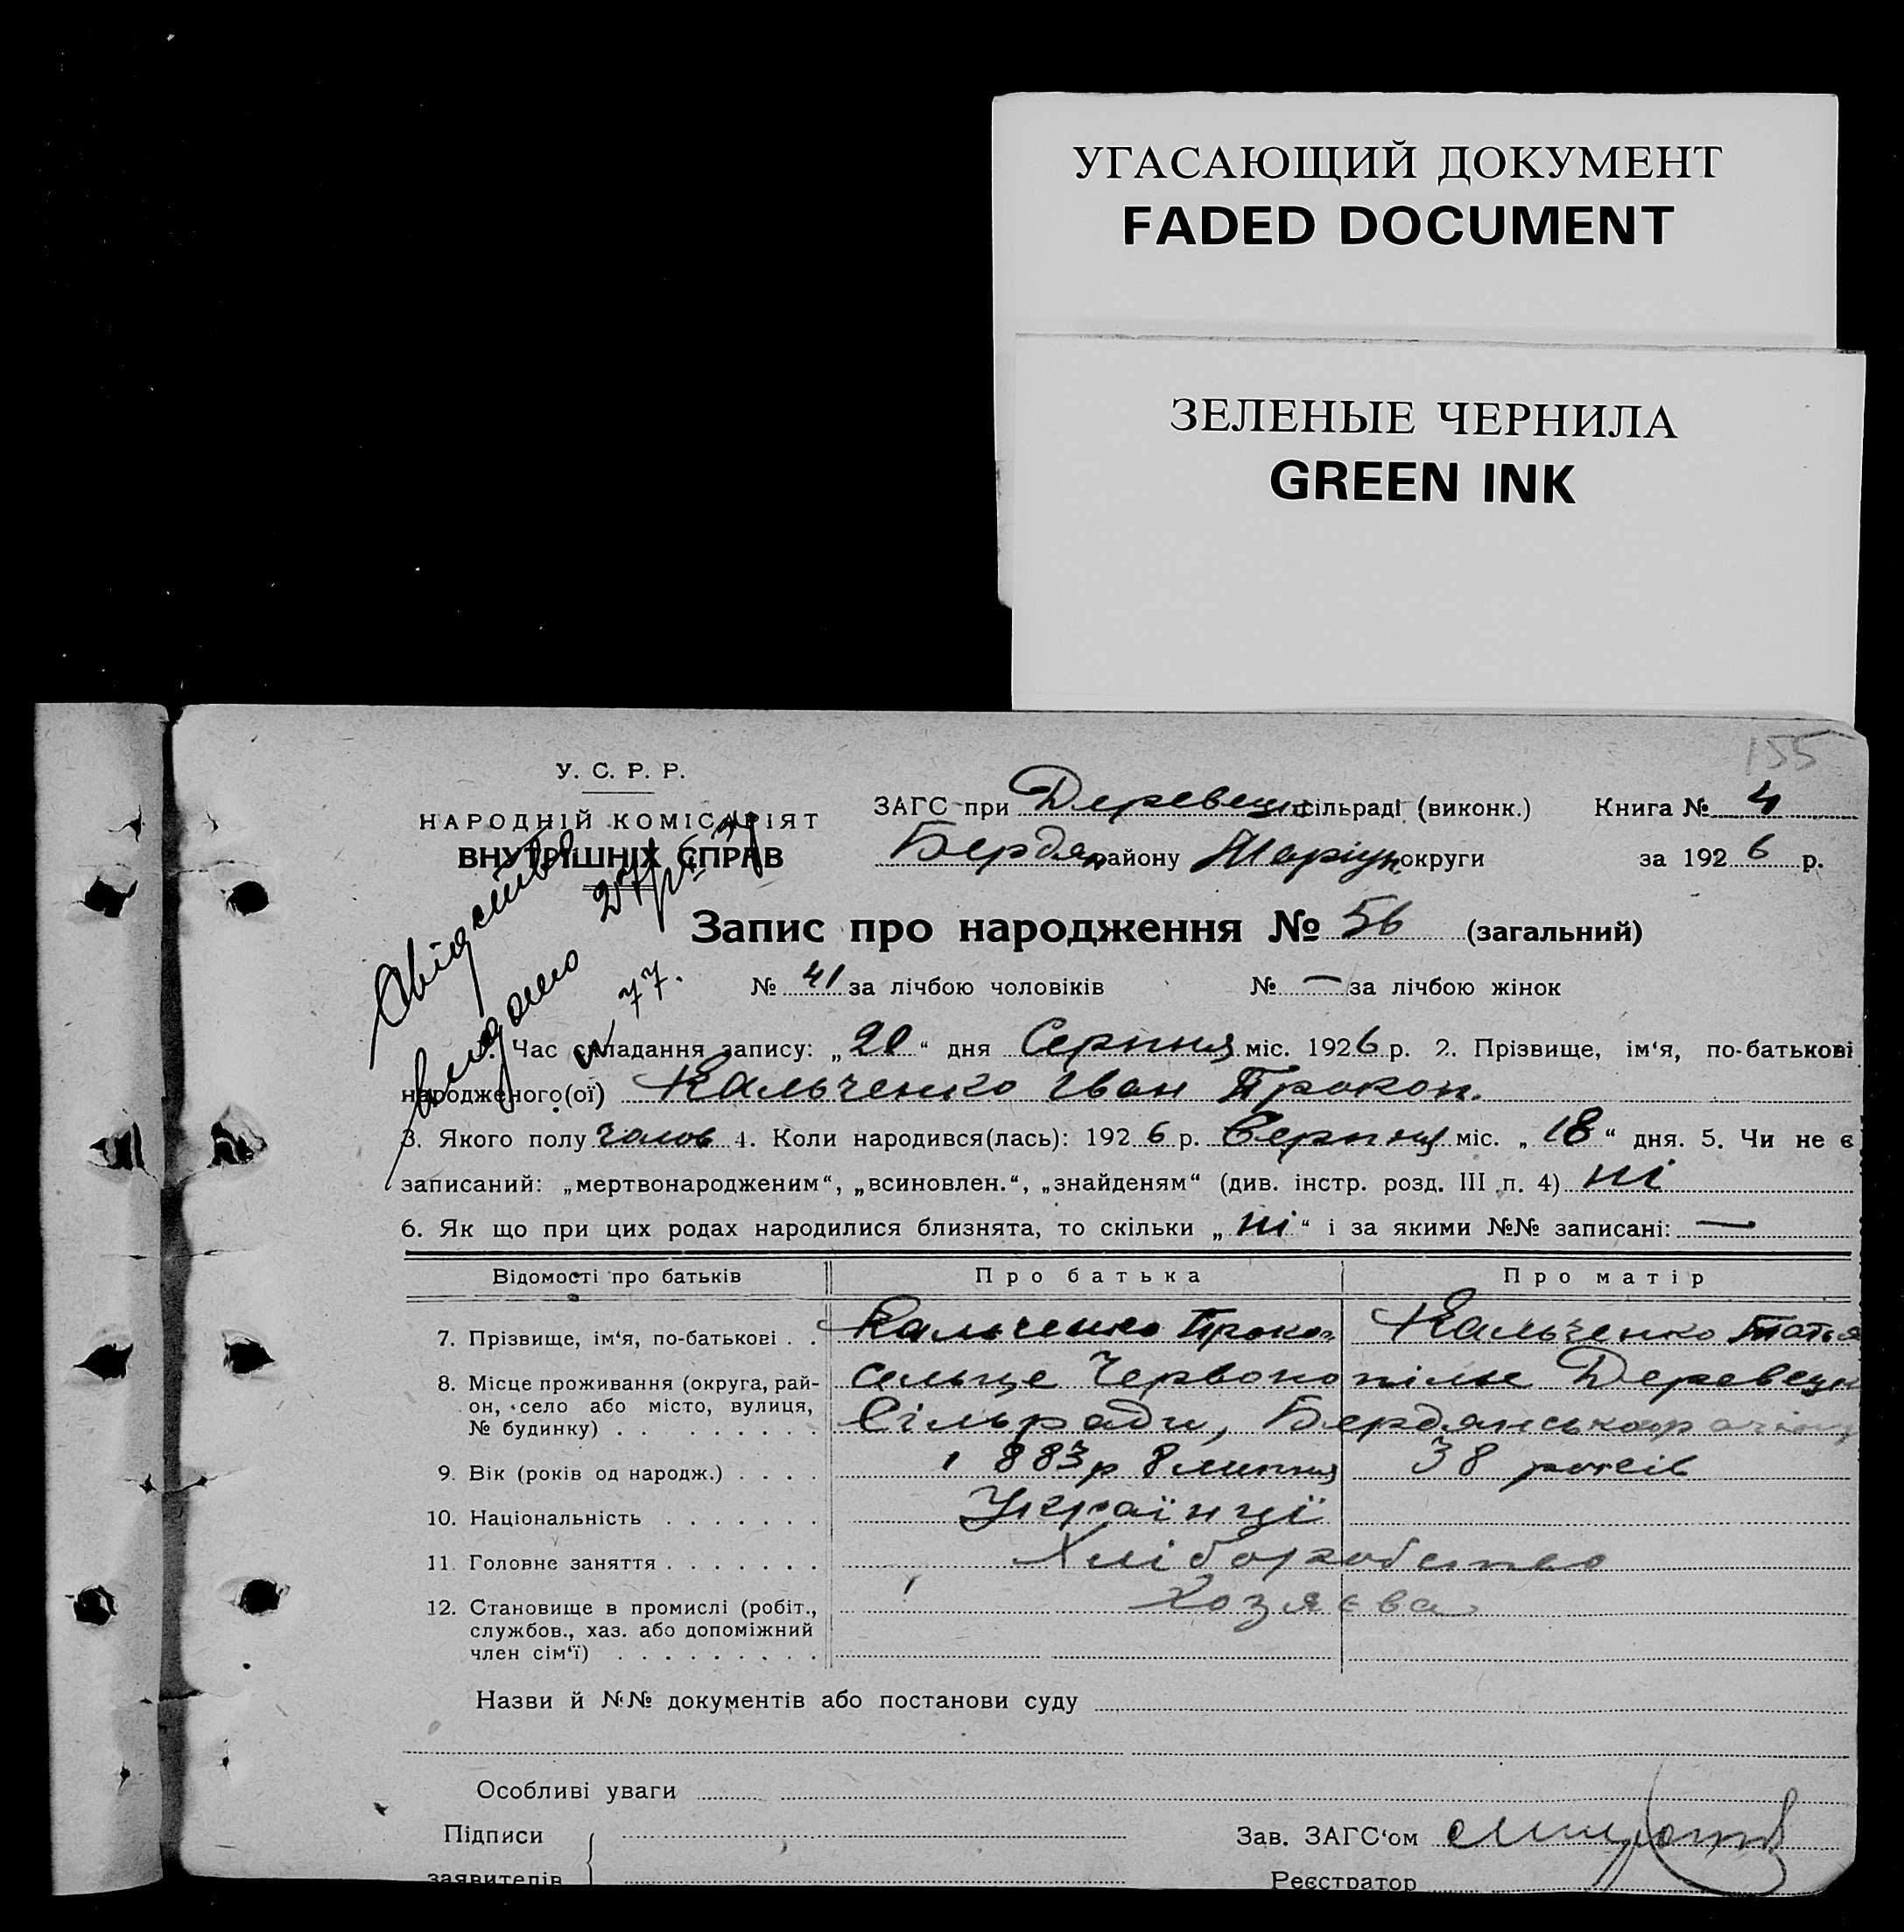 УГАСАЮЩИЙ ДОКУМЕНТ
FADED DOCUMENT
ЗЕЛЕНЫЕ ЧЕРНИЛА
GREEN INK
155
У. С. Р. Р.
НАРОДНІЙ КОМІСАРІЯТ
ВНУТРІШНІХ СПРАВ
ЗАГС при Деревецк сільраді (виконк.) Книга № 4
Бердян району Маріуп. округи за 1926 р.
Свідоцтво
видано
№ 77.
Запис про народження № 56 (загальний)
№ 41 за лічбою чоловіків № — за лічбою жінок
1. Час складання запису: „20“ дня Серпня міс. 1926 р. 2. Прізвище, ім‘я, по-батькові
народженого(ої) Кальченко Іван Прокоп.
3. Якого полу чолов 4. Коли народився(лась): 1926 р. Серпня міс. „18“ дня. 5. Чи не є
записаний: „мертвонародженим“, „всиновлен.“, „знайденям“ (див. інстр. розд. III п. 4) ні
6. Як що при цих родах народилися близнята, то скільки „ні“ і за якими №№ записані: —
Відомості про батьків Про батька Про матір
7. Прізвище, ім‘я, по-батькові . . Кальченко Прокоп Кальченко Татья
8. Місце проживання (округа, рай-
он, село або місто, вулиця,
№ будинку) . . . . . . . . .
сельце Червонопілье Деревецк
Сільради, Бердянського району
9. Вік (років од народж.) . . . . 1883 р 8 липня 38 років
10. Національність . . . . . . . Українці
11. Головне заняття . . . . . . . Хліборобство
12. Становище в промислі (робіт.,
службов., хаз. або допоміжний
член сім‘ї) . . . . . . . . .
Хозяєва
Назви й №№ документів або постанови суду
Особливі уваги
Підписи
заявителів
Зав. ЗАГС‘ом
Реєстратор